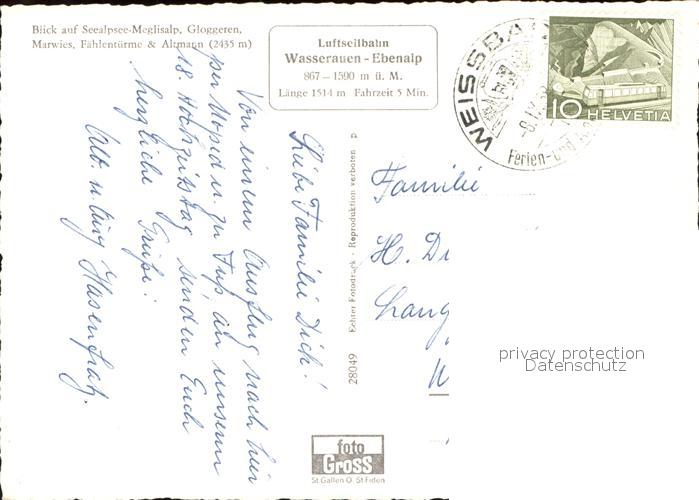 Blick auf Seealpsee-Meglisalp, Gloggeren,
Marwies, Fählentürme & Altmann (2435 m)
Luftseilbahn
Wasserauen - Ebenalp
867 — 1590 m ü. M.
Länge 1514 m Fahrzeit 5 Min.
WEISSBA
Ferien- und
10 HELVETIA
Liebe Familie Dick!
Von einem Ausflug nach hier
per Moped u. zu Fuss an unserm
18. Hochzeitstag senden Euch
herzliche Grüsse!
Alb. u. Hasenfratz.
28049 Echter Fotodruck - Reproduktion verboten P
Familie
H. Di
Lang
privacy protection
Datenschutz
foto
Gross
St. Gallen O. St Fiden